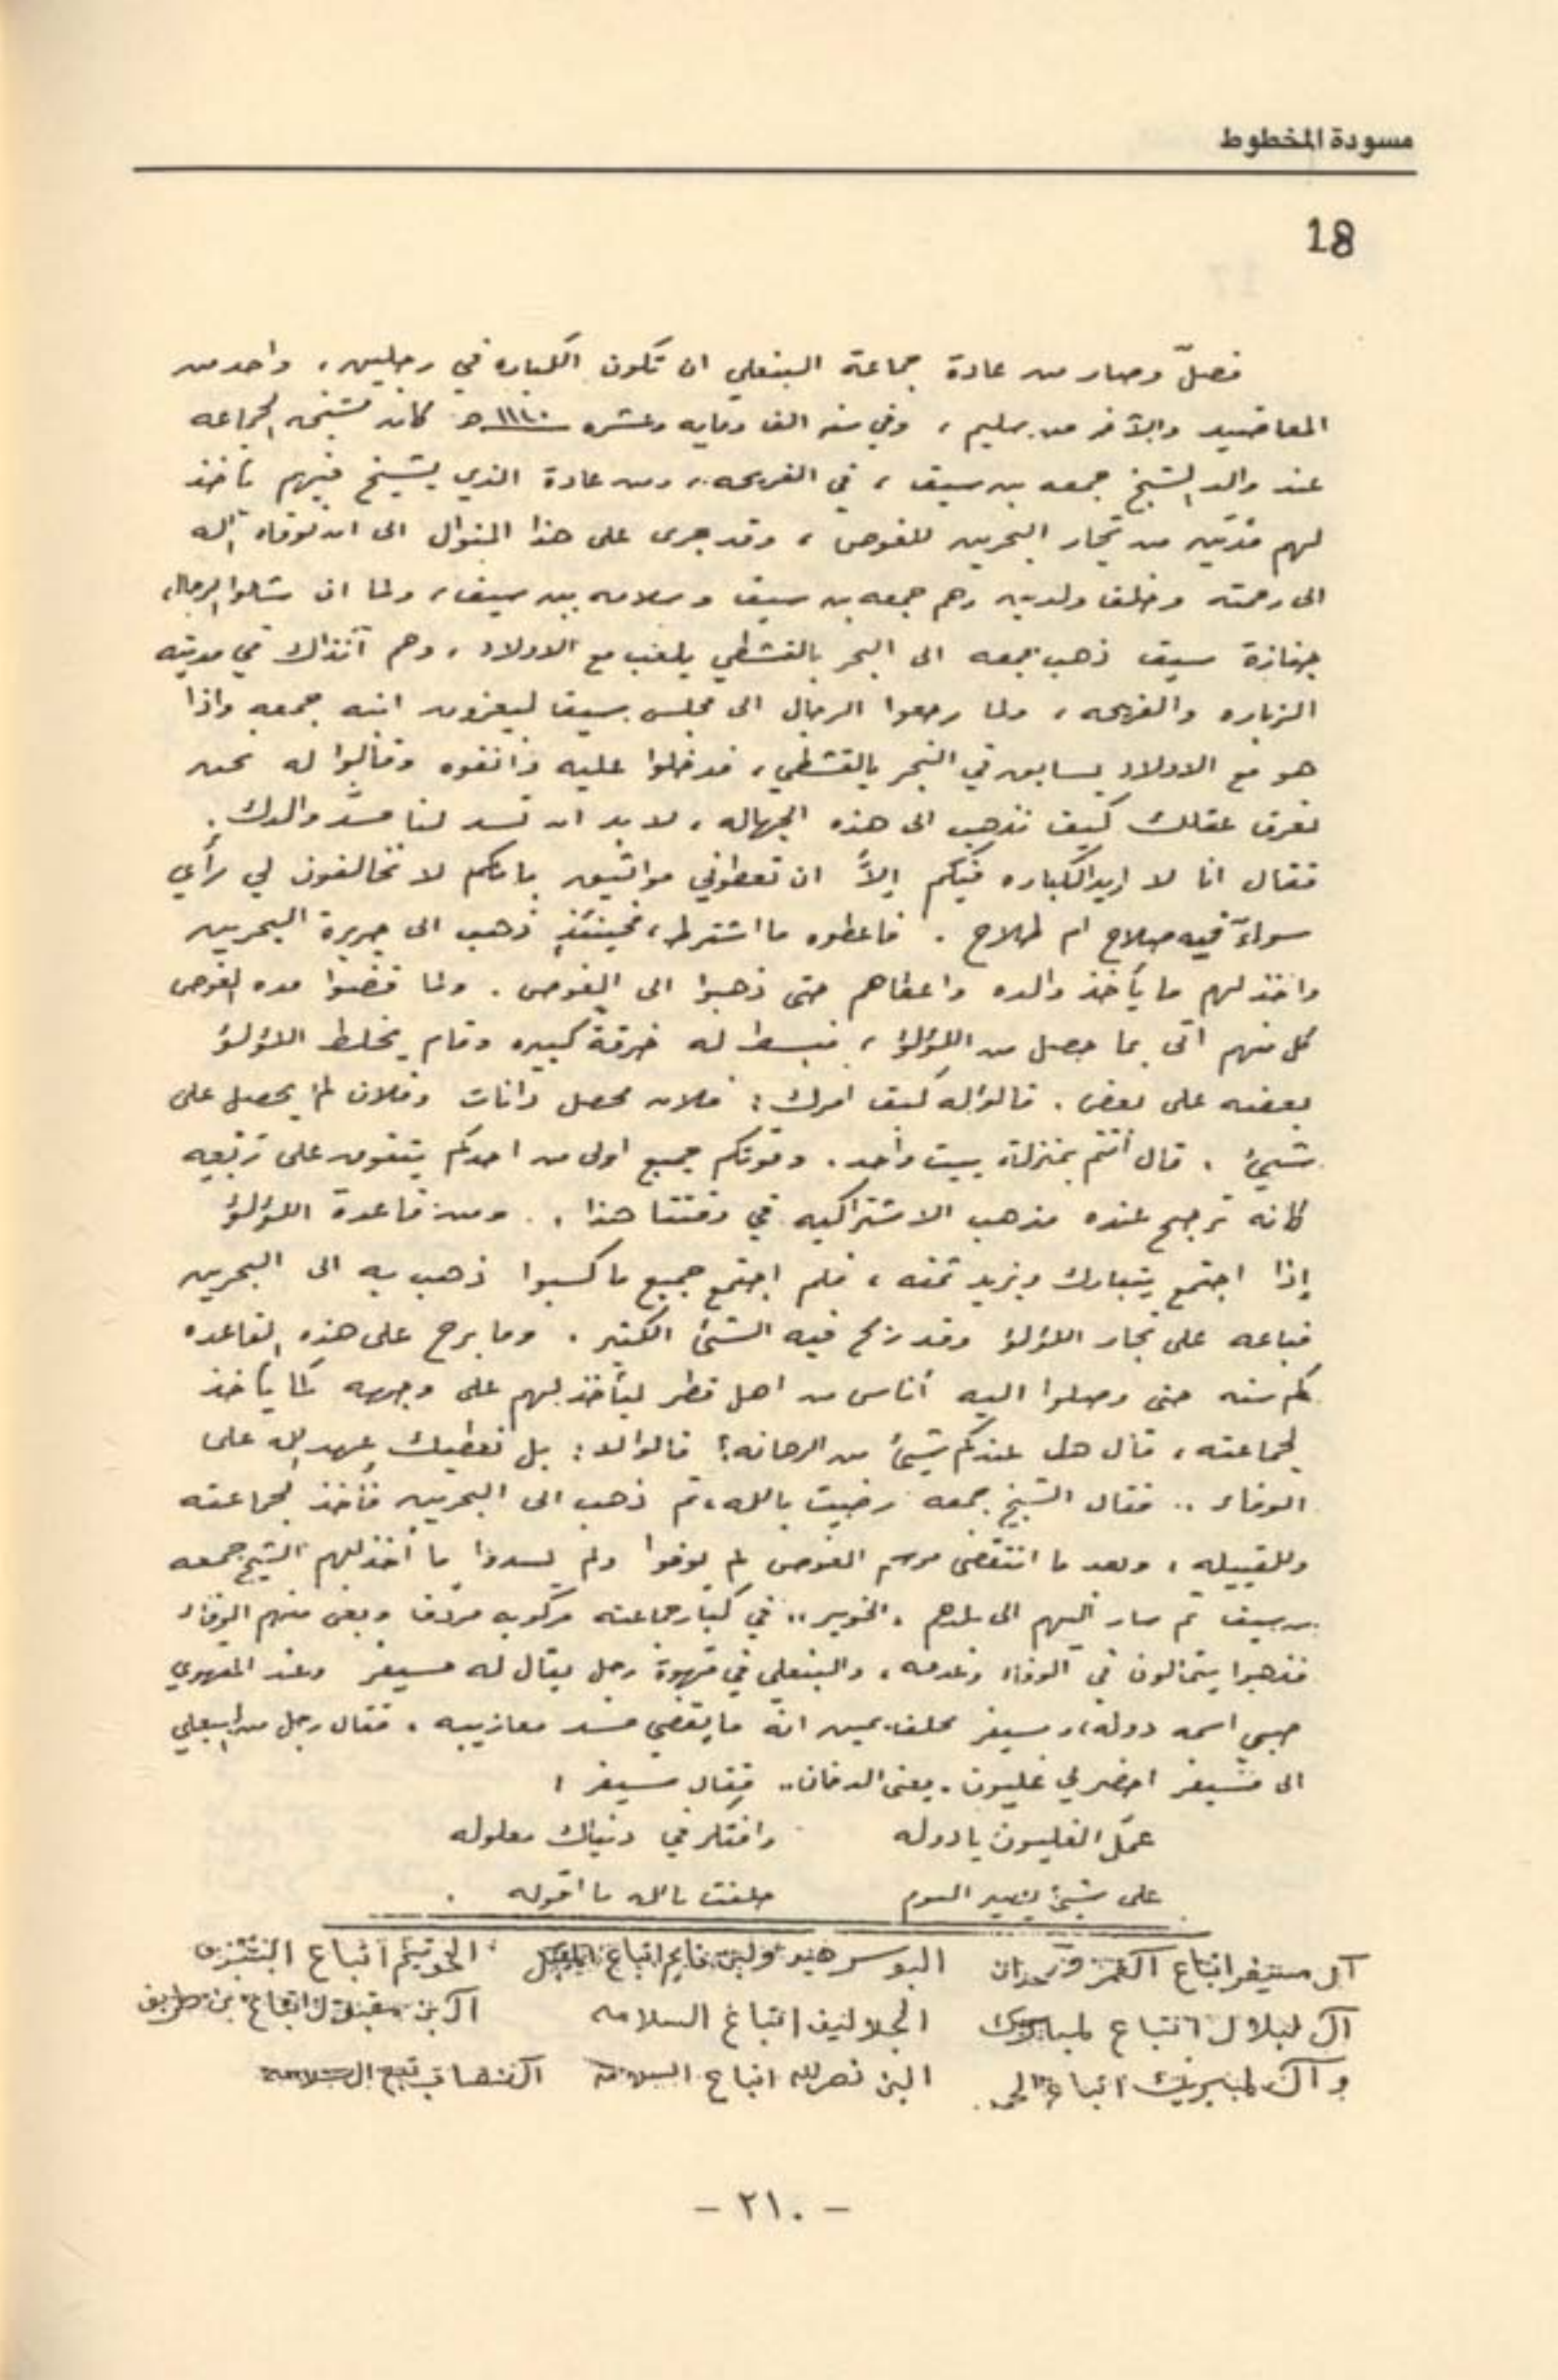 مسودة المخطوط
18
فصلّ وصار من عادة جماعة البنعلي ان تكون الكباره في رجلين، واحد من
المعاضيد والآخر من سليم، وفي سنه الف ومايه وعشره ١١١٠هـ كانت مشيخه الجماعه
عند والد الشيخ جمعه بن سيف، في الفريحه، ومن عادة الذي يشيخ فيهم ياخذ
لهم من تجار البحرين للغوص، وقد جرى على هذا المنوال الى ان توفاه الله
الى رحمته وخلف ولدين وهم جمعه بن سيف وسلامه بن سيف، ولما ان شالوا الرجال
جنازة سيف ذهب جمعه الى البحر بالقشطي يلعب مع الاولاد، وهم آنذاك في مدينه
الزباره والفريحه، ولما رجعوا الرجال الى مجلس سيف ليعزون ابنه جمعه واذا
هو مع الاولاد يسابق في البحر بالقشطي، فدخلوا عليه وقالوا له نحن
نعرف عقلك كيف تذهب الى هذه الجهاله، لا بد ان تسد لنا مسدّ والدك.
فقال انا لا اريد الكباره فيكم إلاّ ان تعطوني مواثيق بانكم لا تخالفون لي رأي
سواءً فيه صلاح ام طلاح. فاعطوه ما اشترط، فحينئذٍ ذهب الى جزيرة البحرين
واخذ لهم ما يأخذ والده واعطاهم حتى ذهبوا الى الغوص. ولما قضوا مده الغوص
كل منهم اتى بما حصل من اللؤلؤ، فبسط له خرقة كبيره وقام يخلط اللؤلؤ
بعضه على بعض. قالوا له كيف امرك: فلان محصل دانات وفلان لم يحصل على
شيئ. قال أنتم بمنزلة بيت واحد. وقوتكم جميع اولى من احدكم
كانه ترجح عنده مذهب الاشتراكيه في وقتنا هذا.. ومن قاعدة اللؤلؤ
إذا اجتمع يتبارك ويزيد ثمنه، فلم اجتمع جميع ما كسبوا ذهب به الى البحرين
فباعه على تجار اللؤلؤ وقد ربح فيه الشئ الكثير. وما برح على هذه القاعده
كم سنه حتى وصلوا اليه أناس من اهل قطر ليأخذ لهم على وجهه كما يأخذ
لجماعته، قال هل عندكم شيئ من الرهانه؟ قالوا لا: بل نعطيك عهد الله على
الوفاء.. فقال الشيخ جمعه رضيت بالله، ثم ذهب الى البحرين فأخذ لجماعته
وللقبيله، وبعد ما انتقضى موسم الغوص لم يوفوا ولم يسددوا ما أخذ لهم الشيخ جمعه
بن سيف ثم سار اليهم الى بلدهم "الخوير" في كبار جماعته وبغى منهم الوفاء
فذهبوا يتمالون في الوفاء وعدمه، والبنعلي في قهوة رجل يقال له مسيفر وعند المقهوي
صبي اسمه دوله، ومسيفر محلف يمين انه ما يقضي مسد معازيبه، فقال رجل من البنعلي
الى مسيفر احضر لي غليون. يعني الدخان.. فقال مسيفر:
عمّل الغليون يا دوله وافتكر في دنياك معلوله
على شيئ يصير اليوم حلفت بالله ما اقوله.
آل مسيفر اتباع البوسرهيد اتباع الحويتم اتباع
آل لبلال اتباع الجلاليف اتباع السلامه آل بن مقبل اتباع بن طريف
و آل لمبيريك اتباع البن نصرالله اتباع السلامه تبع السلامه
- ٢١٠ -